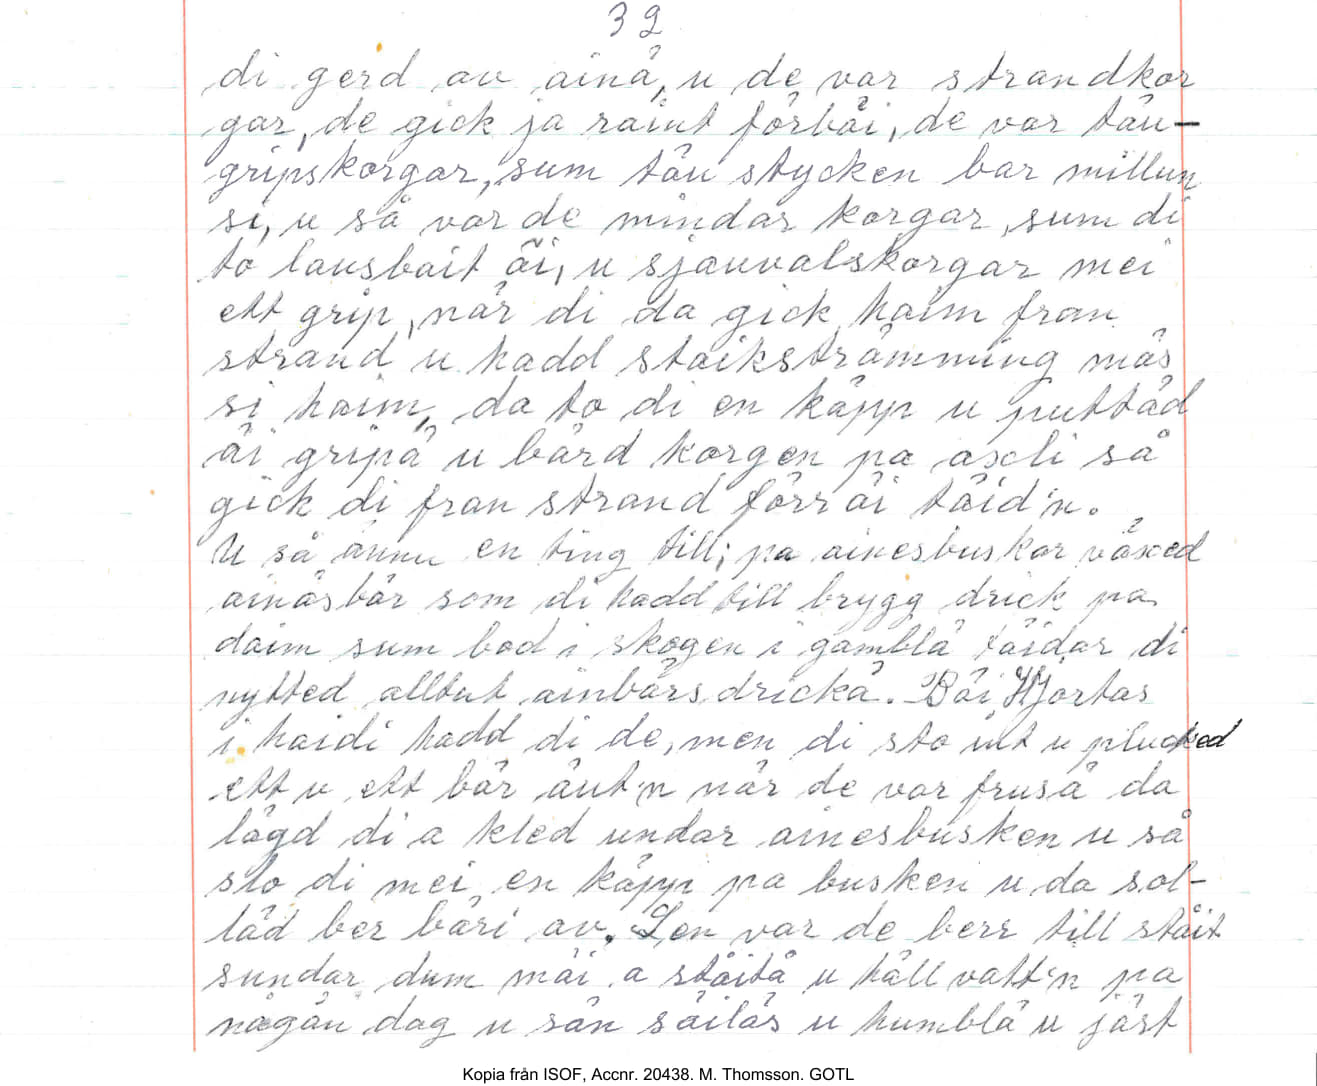 32
di gerd av ainå, u de var strandkor
gar, de gick ja raint förbäi, de var tåu-
gripskorgar, sum tåu stycken bar millun
si, u så var de mindar korgar, sum di
to lausbait äi, u sjauvalskorgar mei
ett grip, når di da gick haim fran
strand u hadd staikströmming mäs
si haim, da to di en käpp u puttäd
äi gripå u bård korgen pa axli så
gick di fran strand förr äi täid'n.
U så ännu en ting till; pa ainesbuskar växed
ainäsbär som di hadd till brygg drick pa
daim sum bod i skogen i gamblå täidar di
nytted alltut ainbärsdrickå. Bäi Hjortas
i haidi hadd di de, men di sto int u plucked
ett u ett bär åut'n når de var fruså da
lägd di a kled undar ainesbusken u så
slo di mei en käpp pa busken u da sol-
läd ber bäri av. Sen var de berr till stäit
sundar dum mäi a stäitå u häll vatt'n pa
någåu dag u sån säiläs u humblå u jäst
Kopia från ISOF, Accnr. 20438. M. Thomsson. GOTL